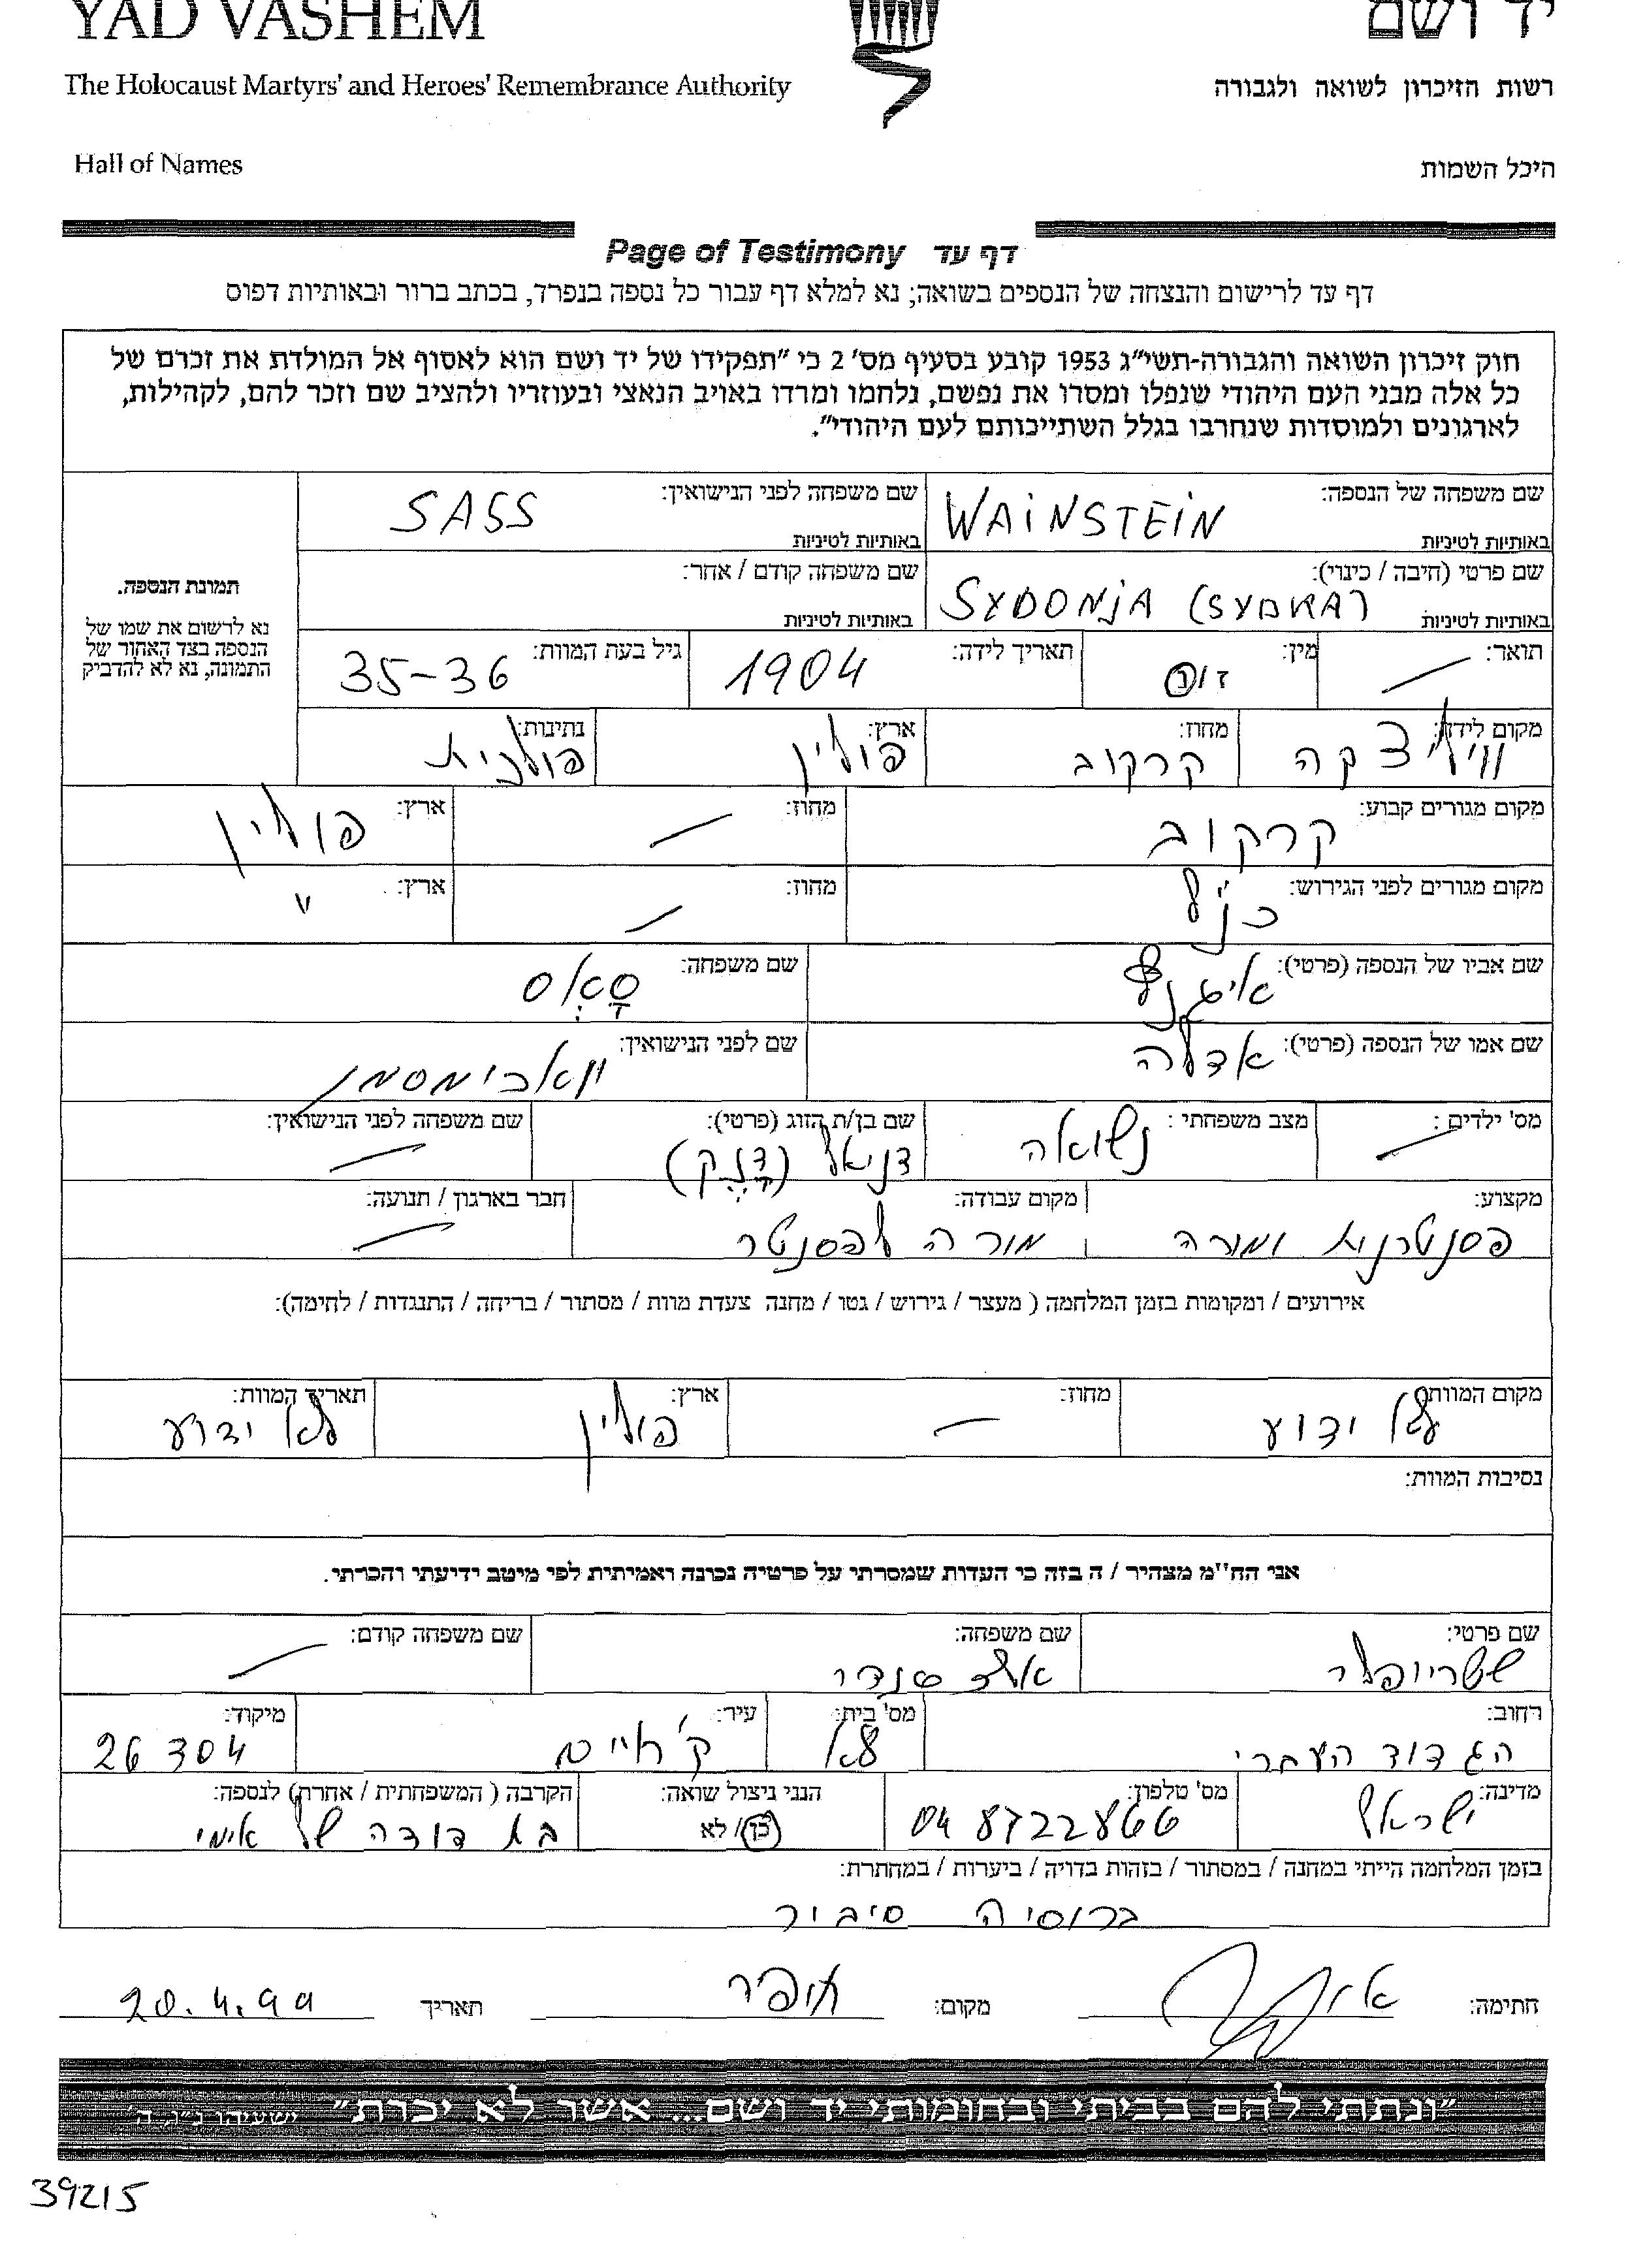 YAD VASHEM יד ושם
The Holocaust Martyrs' and Heroes' Remembrance Authority רשות הזיכרון לשואה ולגבורה
Hall of Names היכל השמות
Page of Testimony דף עד
דף עד לרישום והנצחה של הנספים בשואה; נא למלא דף עבור כל נספה בנפרד, בכתב ברור ובאותיות דפוס
חוק זיכרון השואה והגבורה-תשי"ג 1953 קובע בסעיף מס' 2 כי "תפקידו של יד ושם הוא לאסוף אל המולדת את זכרם של
כל אלה מבני העם היהודי שנפלו ומסרו את נפשם, נלחמו ומרדו באויב הנאצי ובעוזריו ולהציב שם וזכר להם, לקהילות,
לארגונים ולמוסדות שנחרבו בגלל השתייכותם לעם היהודי".
שם משפחה של הנספה: WAINSTEIN שם משפחה לפני הנישואין: SASS
באותיות לטיניות באותיות לטיניות
שם פרטי (חיבה / כינוי): SYDONJA (SYDKA) שם משפחה קודם / אחר:
באותיות לטיניות באותיות לטיניות
תמונת הנספה.
נא לרשום את שמו של
הנספה בצד האחור של
התמונה, נא לא להדביק
תואר: — מין: ז / נ תאריך לידה: 1904 גיל בעת המוות: 35-36
מקום לידה: וויליצקה מחוז: קרקוב ארץ: פולין נתינות: פולנית
מקום מגורים קבוע: קרקוב מחוז: — ארץ: פולין
מקום מגורים לפני הגירוש: כנ"ל מחוז: — ארץ: "
שם אביו של הנספה (פרטי): שם משפחה: סאס
שם אמו של הנספה (פרטי): אדלה שם לפני הנישואין:
מס' ילדים: — מצב משפחתי: נשואה שם בן/ת הזוג (פרטי): דניאל (דנק) שם משפחה לפני הנישואין: —
מקצוע: פסנטרנית ומורה מקום עבודה: מורה לפסנטר חבר בארגון / תנועה: —
אירועים / ומקומות בזמן המלחמה ( מעצר / גירוש / גטו / מחנה צעדת מוות / מסתור / בריחה / התנגדות / לחימה):
מקום המוות: לא ידוע מחוז: — ארץ: פולין תאריך המוות: לא ידוע
נסיבות המוות:
אני הח"מ מצהיר / ה בזה כי העדות שמסרתי על פרטיה נכונה ואמיתית לפי מיטב ידיעתי והכרתי.
שם פרטי: שם משפחה: אלכסנדר שם משפחה קודם: —
רחוב: הגדוד העברי מס' בית: עיר: ק' חיים מיקוד: 26304
מדינה: ישראל מס' טלפון: 04 8722866 הנני ניצול שואה: כן / לא הקרבה ( המשפחתית / אחרת) לנספה: בת דודה של אימי
בזמן המלחמה הייתי במחנה / במסתור / בזהות בדויה / ביערות / במחתרת:
ברוסיה סיביר
חתימה: מקום: חיפה תאריך 20.4.99
"ונתתי להם בביתי ובחומותי יד ושם... אשר לא יכרת" ישעיהו נ"ו, ה'
39215